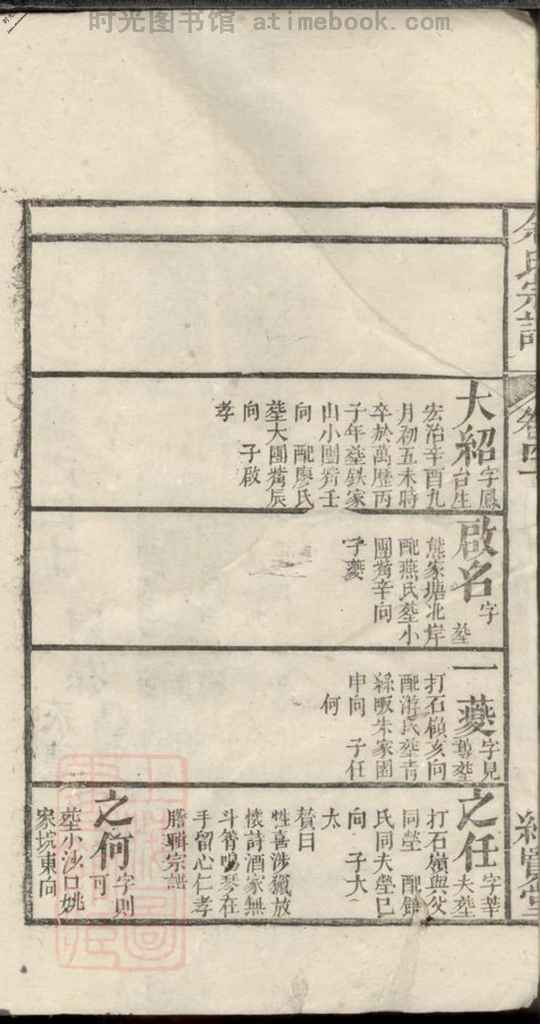 时光图书馆 - atimebook.com
余氏宗譜
卷四
大紹字鳳
台生
宏治辛酉九
月初五未時
卒於萬歷丙
子年塟鉄家
山小團觜壬
向 配廖氏
塟大團觜辰
向 子啟
孝
啟名字
塟
熊家塘北岸
配燕氏塟小
團觜辛向
子夔
一夔字見
塟
打石嶺亥向
配游氏塟青
絲畈朱家園
申向 子任
何
之任字莘
夫塟
打石嶺與父
同塋 配
氏同夫塋巳
向 子大
太
贊曰
性喜涉獵放
懷詩酒家無
斗筲鳴琴在
手留心仁孝
謄輯宗譜
之何字則
可
塟小沙口姚
家垸東向